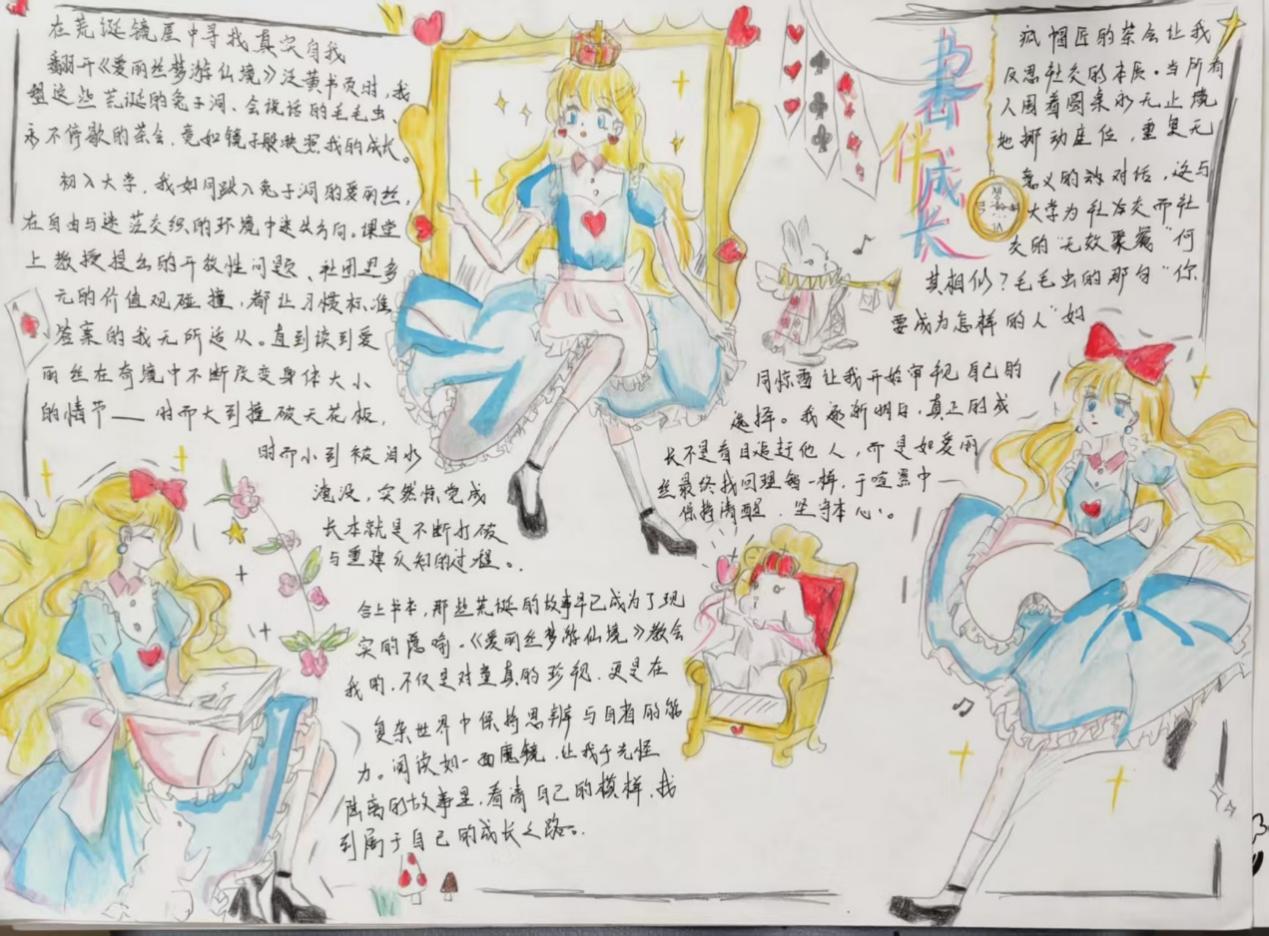 在荒诞镜屋中寻找真实自我
翻开《爱丽丝梦游仙境》泛黄书页时，我
想这些荒诞的兔子洞、会说话的毛毛虫、
永不停歇的茶会，竟如镜子般映照我的成长。
初入大学，我如同跌入兔子洞的爱丽丝，
在自由与迷茫交织的环境中迷失方向。课堂
上教授提出的开放性问题、社团里多
元的价值观碰撞，都让习惯标准
答案的我无所适从。直到读到爱
丽丝在奇境中不断改变身体大小
的情节——时而大到撞破天花板，
时而小到被泪水
淹没，突然惊觉成
长本就是不断打破
与重建认知的过程。
书香
伴成长
疯帽匠的茶会让我
反思社交的本质。当所有
人围着圆桌永无止境
地挪动座位，重复无
意义的对话，这与
大学为社交而社
交的"无效聚餐"何
其相似？毛毛虫的那句"你
要成为怎样的人"如
同惊雷让我开始审视自己的
选择。我逐渐明白，真正的成
长不是盲目追赶他人，而是如爱丽
丝最终找回理智一样，于喧嚣中
保持清醒，坚守本心。
合上书本，那些荒诞的故事早已成为了现
实的隐喻。《爱丽丝梦游仙境》教会
我的，不仅是对童真的珍视，更是在
复杂世界中保持思辨与自省的能
力。阅读如一面魔镜，让我于光怪
陆离的故事里，看清自己的模样，找
到属于自己的成长之路。
A